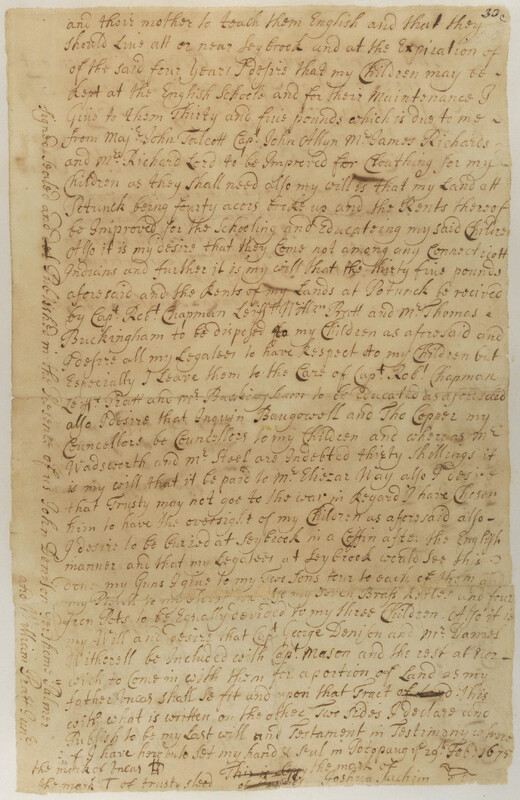 33
and their mother to teach them English and that they
should Live att or near Seybrook and at the Expiration of
of the said four Years I desire that my Children may be
kept at the English Schoole and for their Maintenance I
Give to them Thirty and five pounds which is due to me
from Maj: John Talcott Capt. John Allyn Mr. James Richards
and Mr. Richard Lord to be Improved for Cloathing for my
Children as they Shall need also my will is that my Land att
being fourty acers broke up and the Rents thereof
be Improved for the Schooling and Educateing my said Children
Also it is my desire that they Come not among any Connecticott
Indians and further it is my will that the thirty five pounds
aforesaid and the Rents of my Lands at be recived
by Capt. Robt. Chapman Leift. Willm. Pratt and Mr. Thomas
Buckingham to be disposed to my Children as aforesaid and
I desire all my Legatees to have Respect to my Children but
Especially I Leave them to the Care of Capt. Robt. Chapman
Leift. Pratt and Mr. Buckingham to be Educated as aforesaid
also I desire that and The Copper my
Councellors be Councellors to my Children and whereas Mr.
Wadsworth and Mr. Steel are Indebted thirty shellings it
is my will that it be paid to Mr. Eliezar Way also I desire
that Trusty may not goe to the war in Regard I have Chosen
him to have the oversight of my Children as aforesaid also
I desire to be buried at Seybrook in a Coffin after the English
manner and that my Legatees at Seybrook would See this
done my Guns I give to my two Sons four to each of them and
my to my my Seven Brass Kettles and four
Iron Pots to be Equally devided to my three Children. Also it is
my Will and desire that Capt. George Denison and Mr. James
Witherell be Included with Capt. Mason and the rest
to Come in with them for a portion of Land as my
father Uncas shall se fit and upon that Tract of This
with what is written on the other Two Sides I Declare and
Publish to be my Last will and Testament in Testimony whereof
I have hereunto set my hand & seal in 29th. Feb: 1675
the mark of Uncas the mark of
the mark T of trusty Joshua
Signed Sealed and Published in the presence of us John Denison Gershom Palmer
and William Pratt